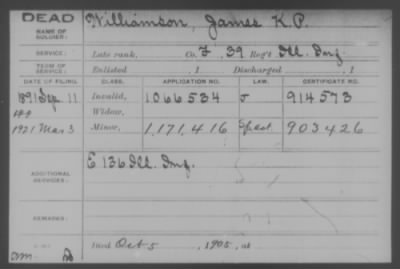 DEAD
NAME OF SOLDIER: Williamson, James K.P.
SERVICE: Late rank, Co. F, 39 Reg't Ill. Inf.
TERM OF SERVICE: Enlisted , 1 Discharged , 1
DATE OF FILING. CLASS. APPLICATION NO. LAW. CERTIFICATE NO.
1891 Sep. 11 Invalid, 1066534 J 914573
Widow,
1921 Mar 3 Minor, 1,171,416 903426
ADDITIONAL SERVICES: E 136 Ill. Inf.
REMARKS:
Died Oct 5, 1905, at